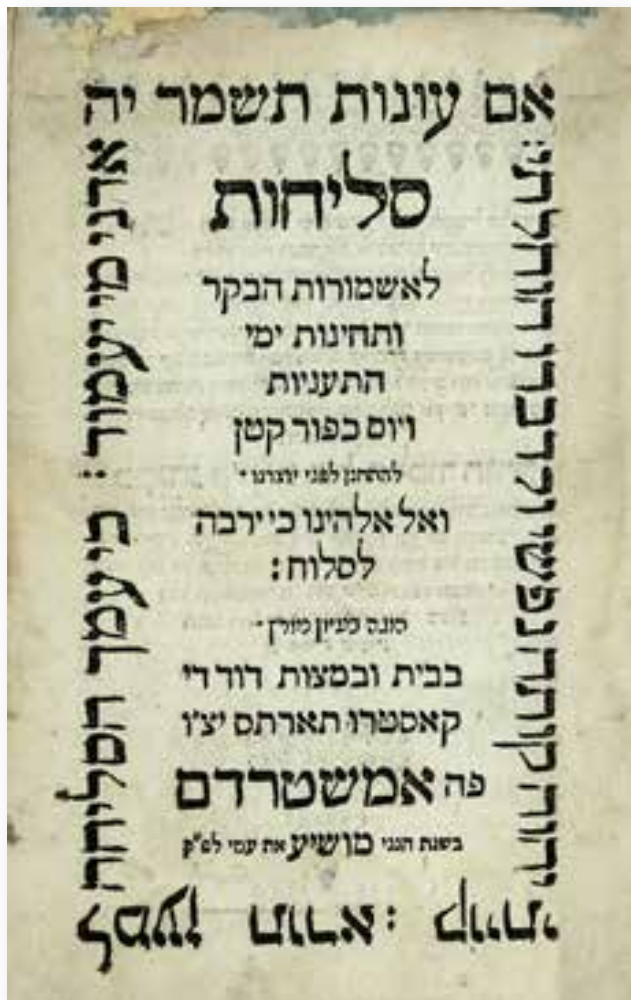 אם עונות תשמר יה
אדני מי יעמוד: כי עמך הסליחה
למען תורא: קויתי
ידוה קותה נפשי ולדברו הוחלתי:
סליחות
לאשמורות הבקר
ותחינות ימי
התעניות
ויום כפור קטן
להתחנן לפני יוצרנו
ואל אלהינו כי ירבה
לסלוח:
מוגה בעיון נמרץ
בבית ובמצות דוד די
קאסטרו תארתס יצ"ו
פה אמשטרדם
בשנת הנני מושיע את עמי לפ"ק